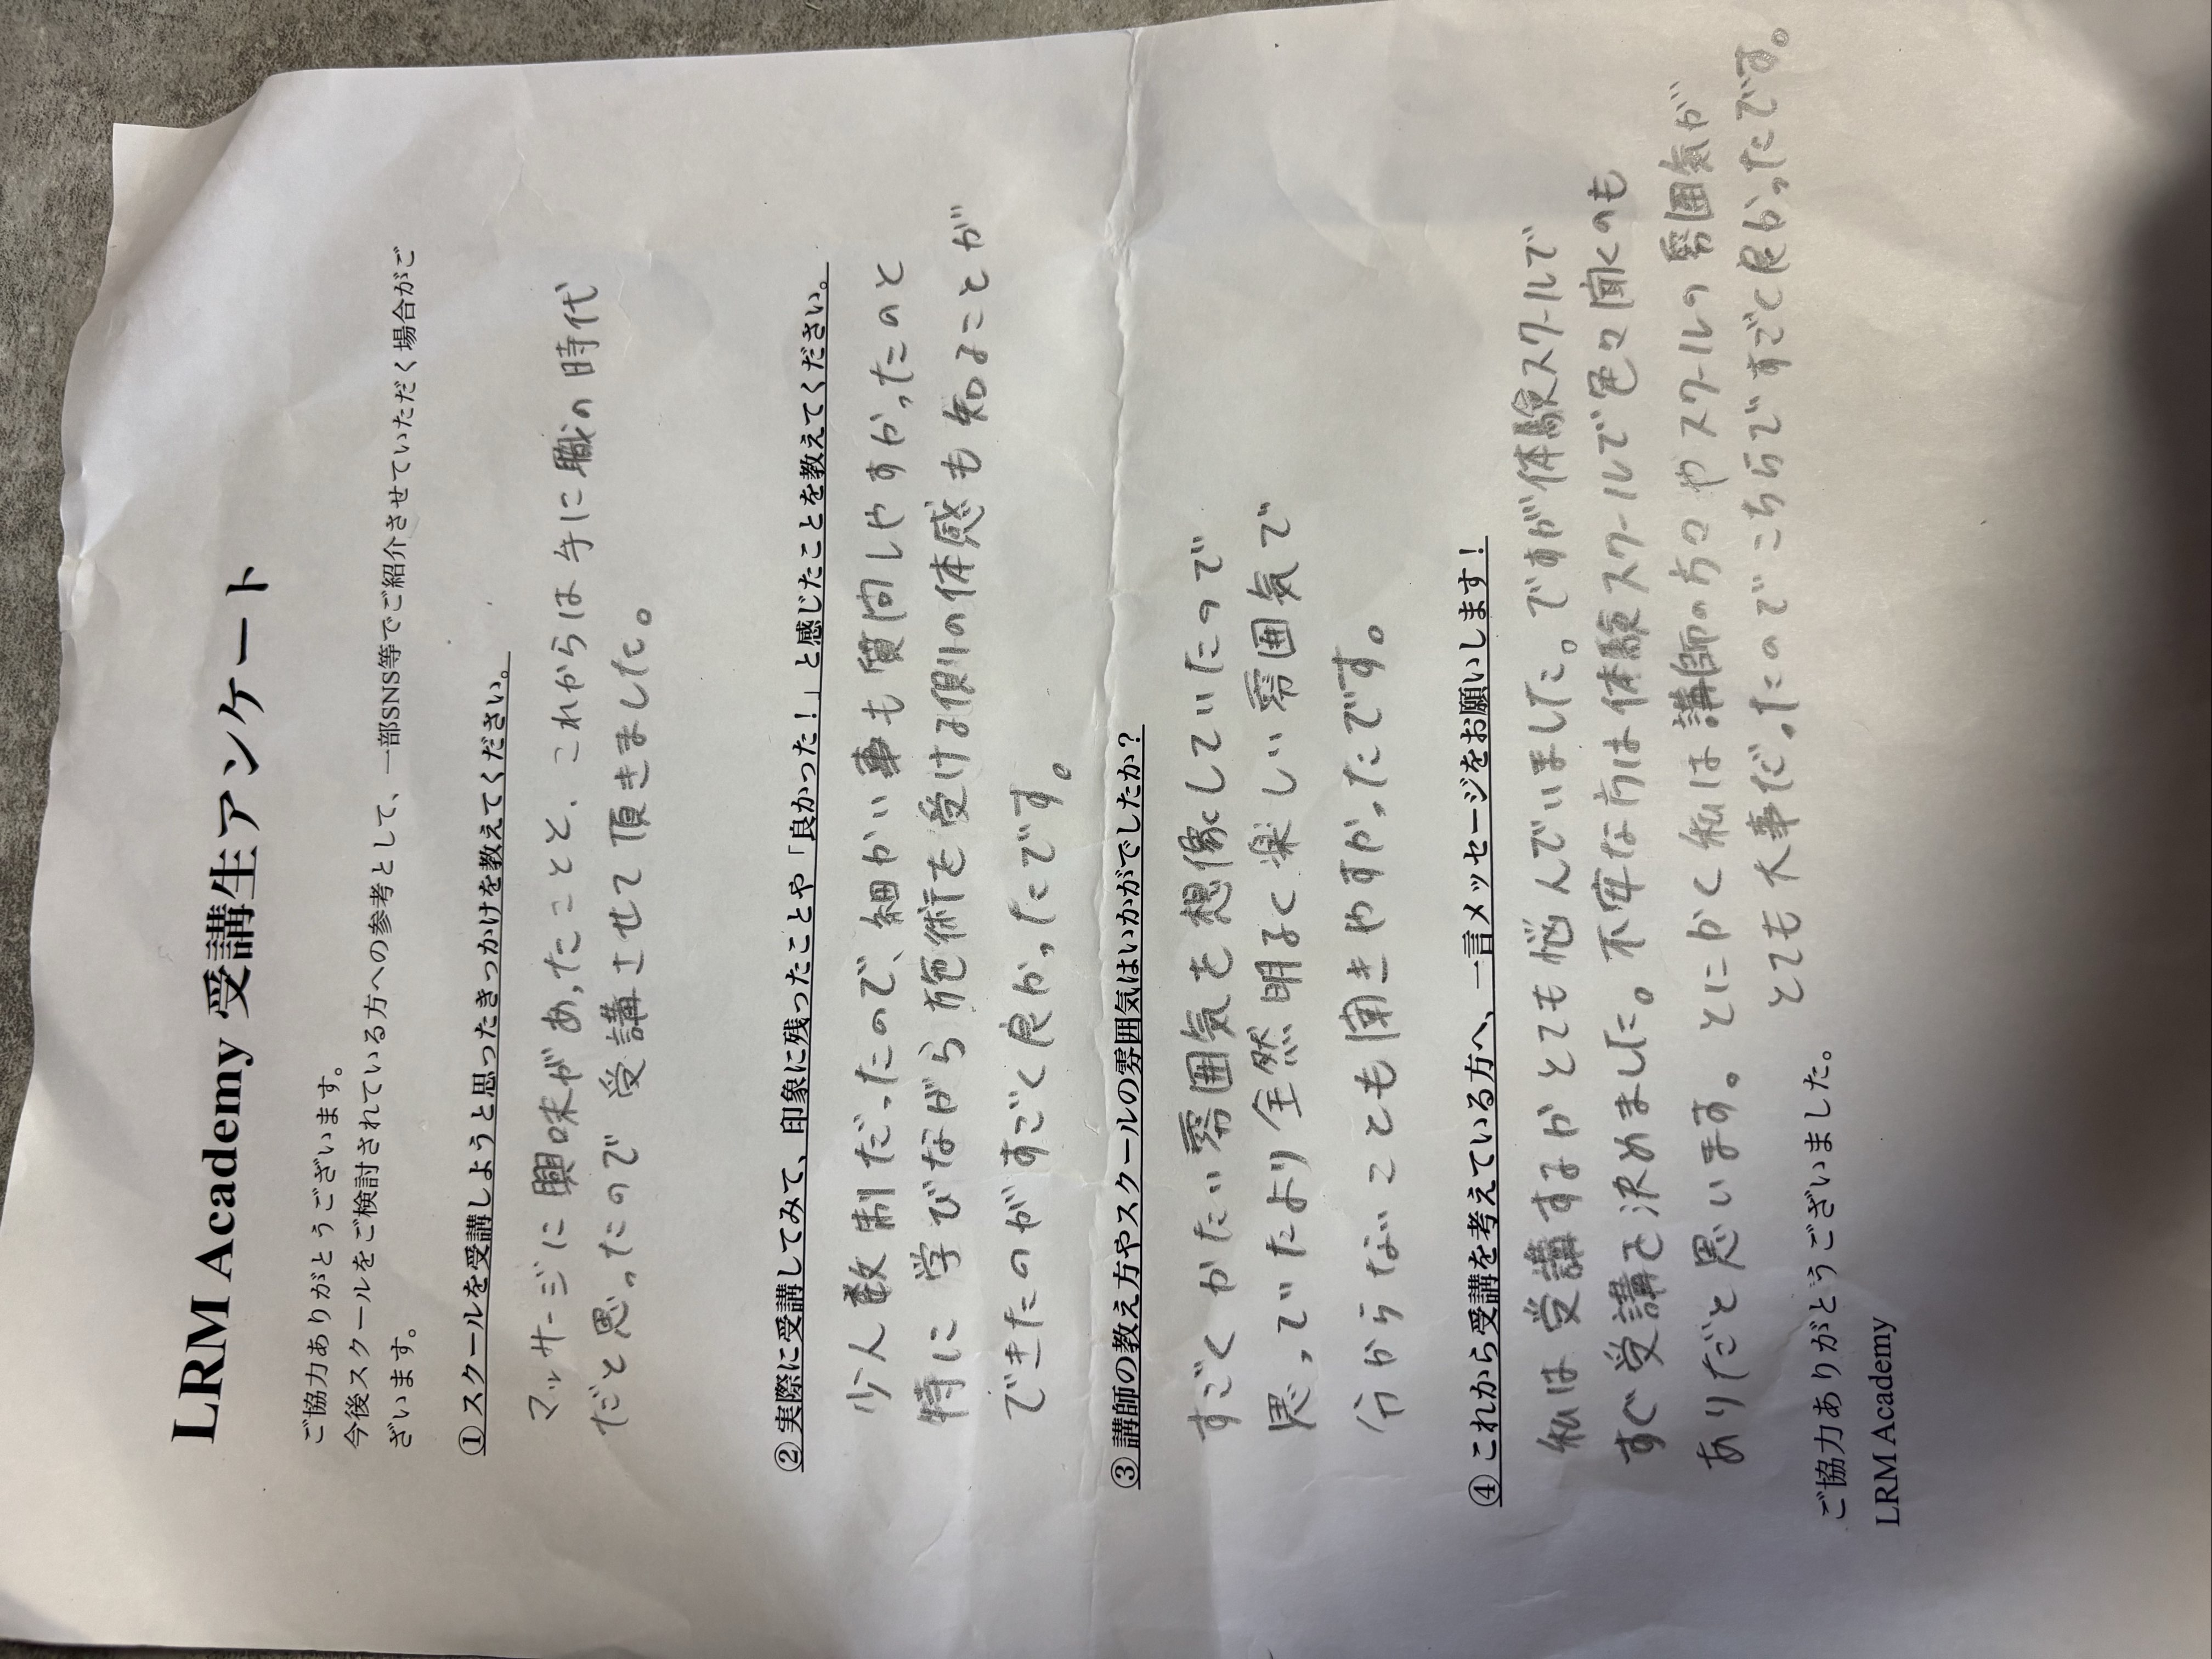 LRM Academy 受講生アンケート
ご協力ありがとうございます。
今後スクールをご検討されている方への参考として、一部SNS等でご紹介させていただく場合がご
ざいます。
①スクールを受講しようと思ったきっかけを教えてください。
マッサージに興味があったことと、これからは手に職の時代
だと思ったので 受講させて頂きました。
②実際に受講してみて、印象に残ったことや「良かった！」と感じたことを教えてください。
少人数制だったので、細かい事も質問しやすかったのと
特に学びながら施術を受ける側の体感も知ることが
できたのがすごく良かったです。
③講師の教え方やスクールの雰囲気はいかがでしたか？
すごくかたい雰囲気を想像していたので
思っていたより全然明るく楽しい雰囲気で
分からないことも聞きやすかったです。
④これから受講を考えている方へ、一言メッセージをお願いします！
私は受講するかとても悩んでいました。ですが体験スクールで
すぐ受講を決めました。不安な方は体験スクールで色々聞くのも
ありだと思います。とにかく私は講師の方々やスクールの雰囲気が
とても大事だったのでこちらですごく良かったです。
ご協力ありがとうございました。
LRM Academy